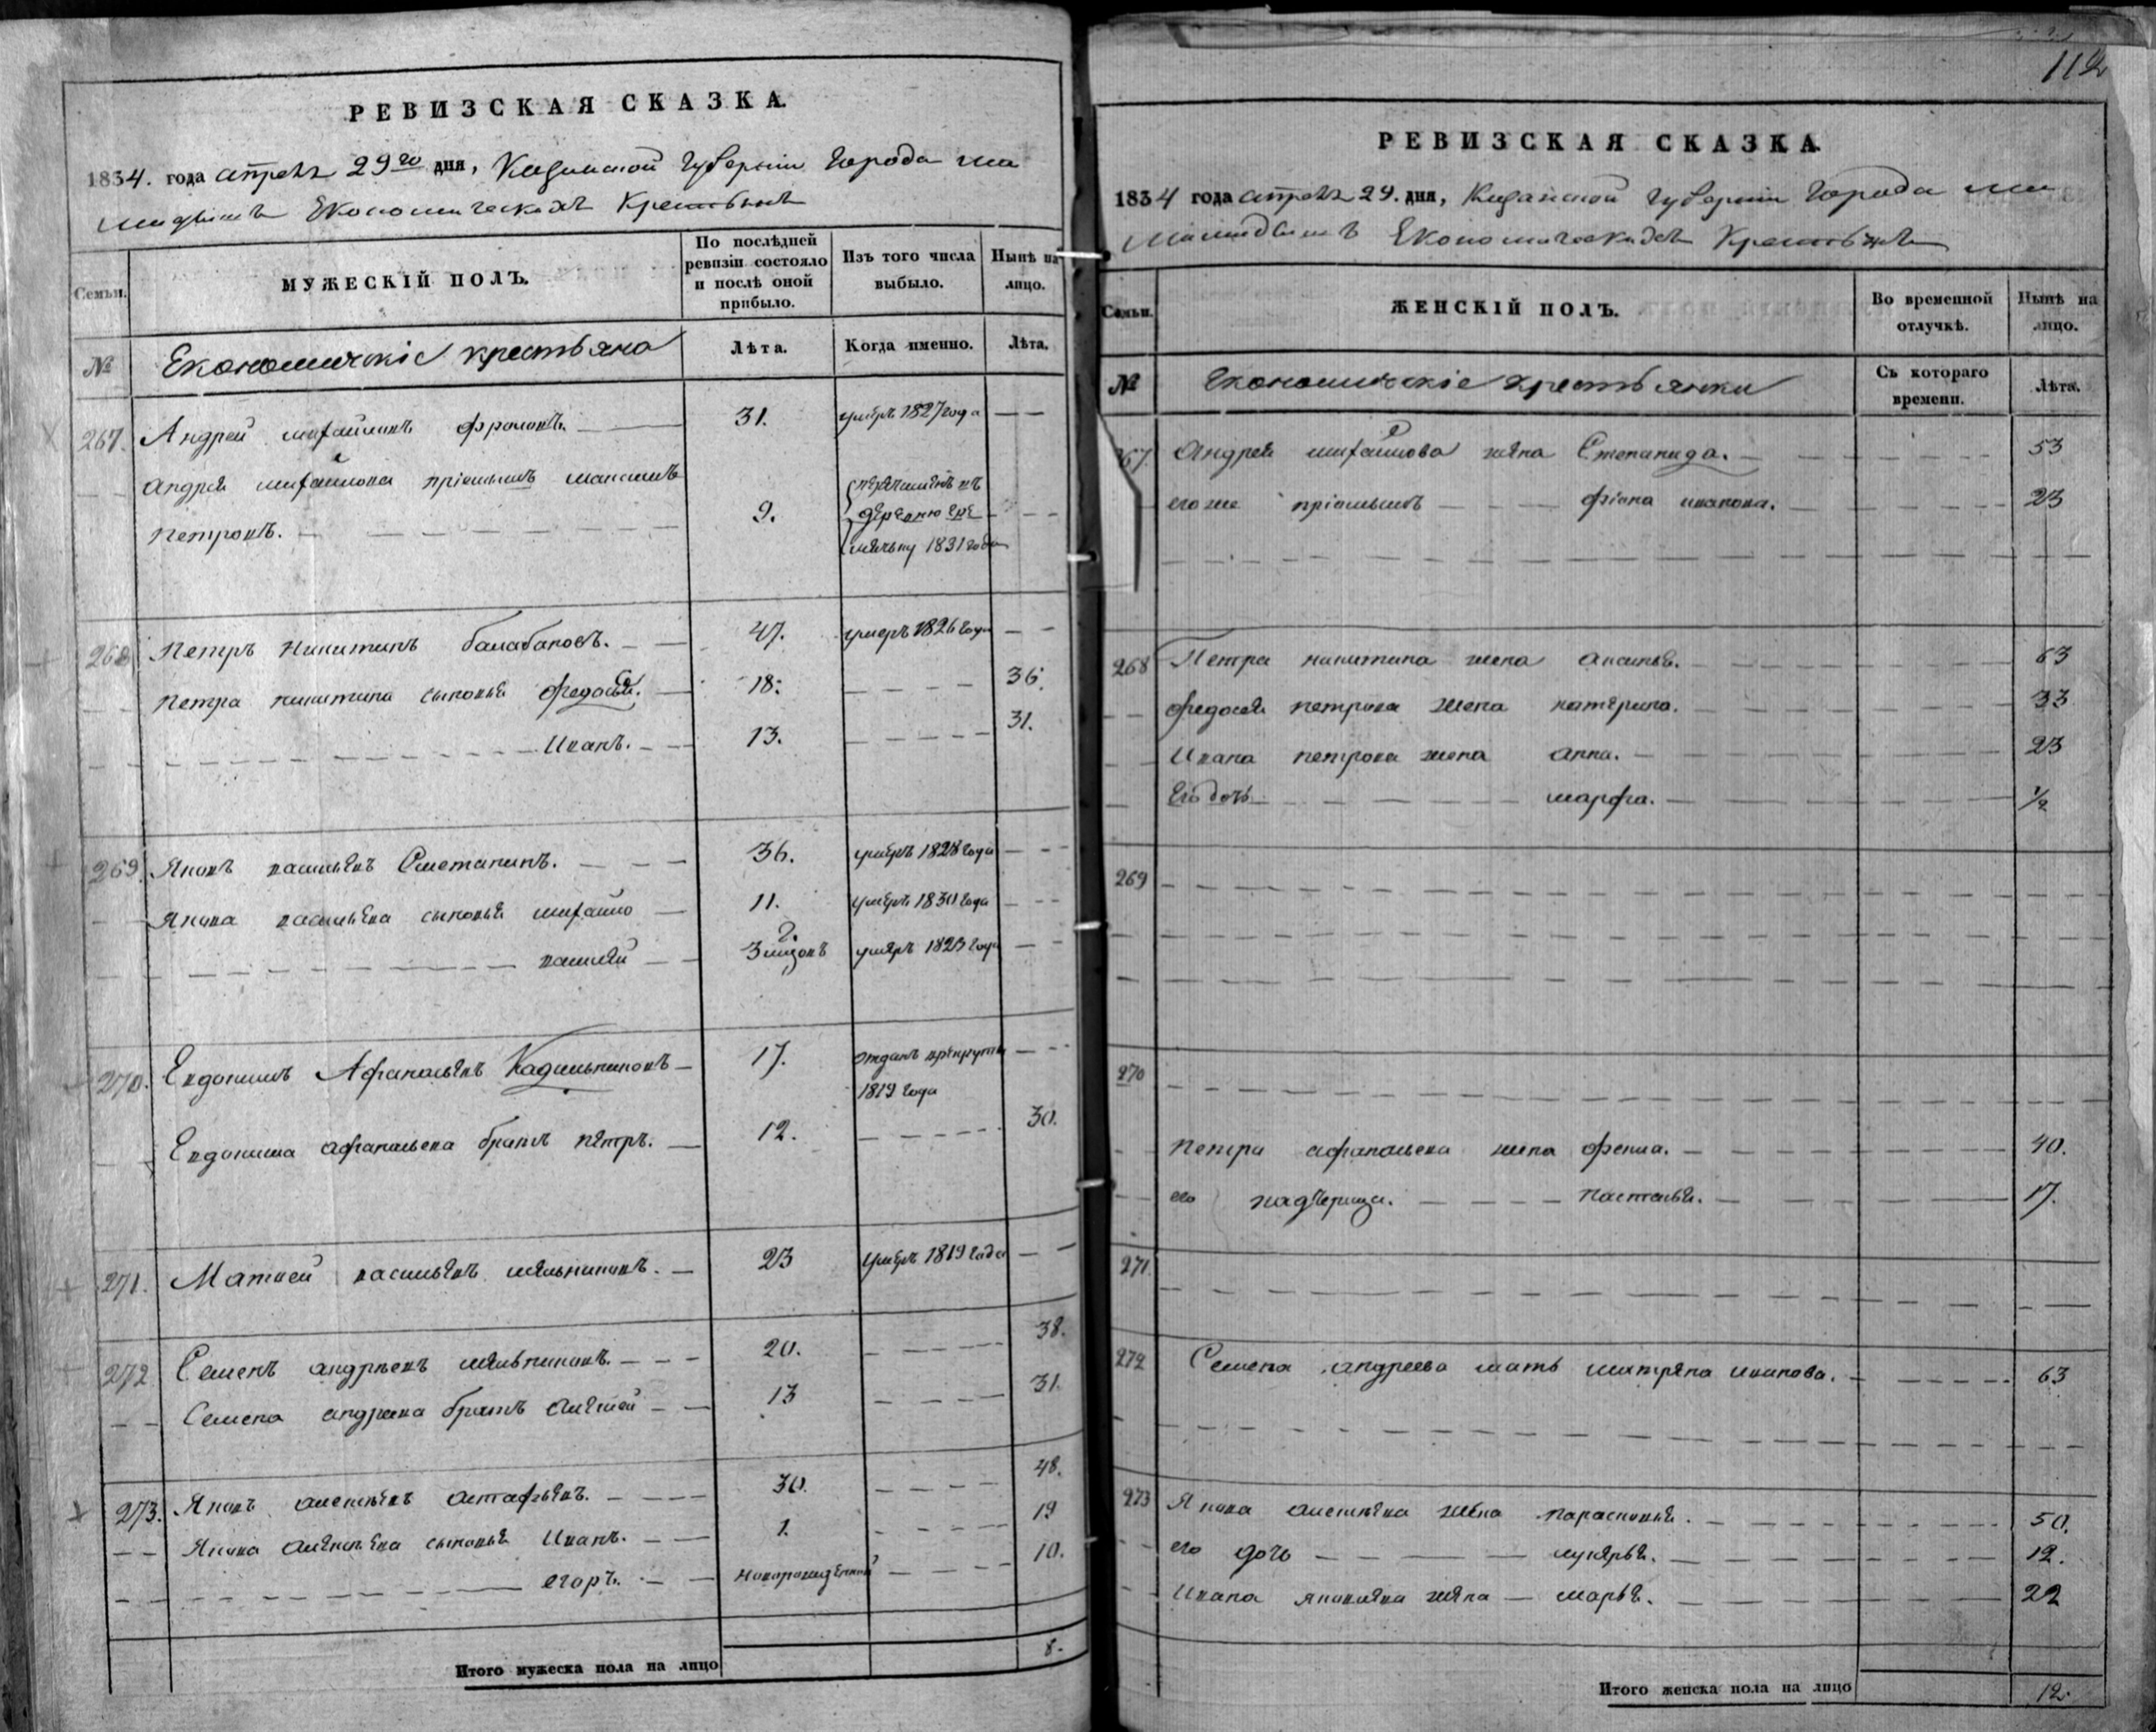 РЕВИЗСКАЯ СКАЗКА.
1834. года апреля 29го дня, Казанской губернии города Ма
мадыша Економическихъ Крестьянъ
Семьи.
МУЖЕСКІЙ ПОЛЪ.
По послѣдней ревизіи состояло и послѣ оной прибыло.
Изъ того числа выбыло.
Нынѣ на лицо.
№
Економическіе крестьяне
Лѣта.
Когда именно.
Лѣта.
267. Андрей михайловъ фроловъ. 31. умеръ 1827 года
Андрея михайлова пріемышъ максимъ
петровъ. 9. перечисленъ въ
деревню
1831 года
268 Петръ Никитинъ балабановъ. 47. умеръ 1826 года
Петра никитина сыновья федосей. 18. 36.
Иванъ. 13. 31.
269. Яковъ васильевъ Сметанинъ. 36. умеръ 1828 года
Якова васильева сыновья михайло 11. умеръ 1830 года
василей 3 умеръ 1823 года
270. Евдокимъ Афанасьевъ Кадильниковъ 17. отданъ врекруты
1819 года
Евдокима афанасьева братъ петръ. 12. 30.
271. Матвей васильевъ мельниковъ. 23 умеръ 1819 года
272 Семенъ андреевъ мельниковъ. 20. 38.
Семена андреева братъ алексей 13 31.
273. Яковъ алексеевъ астафьевъ. 30. 48.
Якова алексеева сыновья Иванъ. 1. 19
егоръ. новорожденный 10.
Итого мужеска пола на лицо 8.
112
РЕВИЗСКАЯ СКАЗКА
1834 года апреля 29. дня, Казанской губернии города Ма
мадыша Економическихъ Крестьянъ
Семьи.
ЖЕНСКІЙ ПОЛЪ.
Во временной отлучкѣ.
Нынѣ на лицо.
№
Економическіе крестьянки
Съ котораго времени.
Лѣта.
267. Андрея михайлова жена Степанида. 53
его же пріемышъ иванова. 23
268 Петра никитина жена аксинья. 63
федосея петрова жена катерина. 33
Ивана петрова жена анна. 23
Его дочь марфа. 1/2
269
270
Петра афанасьева жена фекла. 40.
его падчерица. настасья. 17.
271
272 Семена андреева мать матрена иванова. 63
273 Якова алексеева жена парасковья. 50.
его дочь лукерья. 12.
Ивана яковлева жена марья. 22
Итого женска пола на лицо 12.